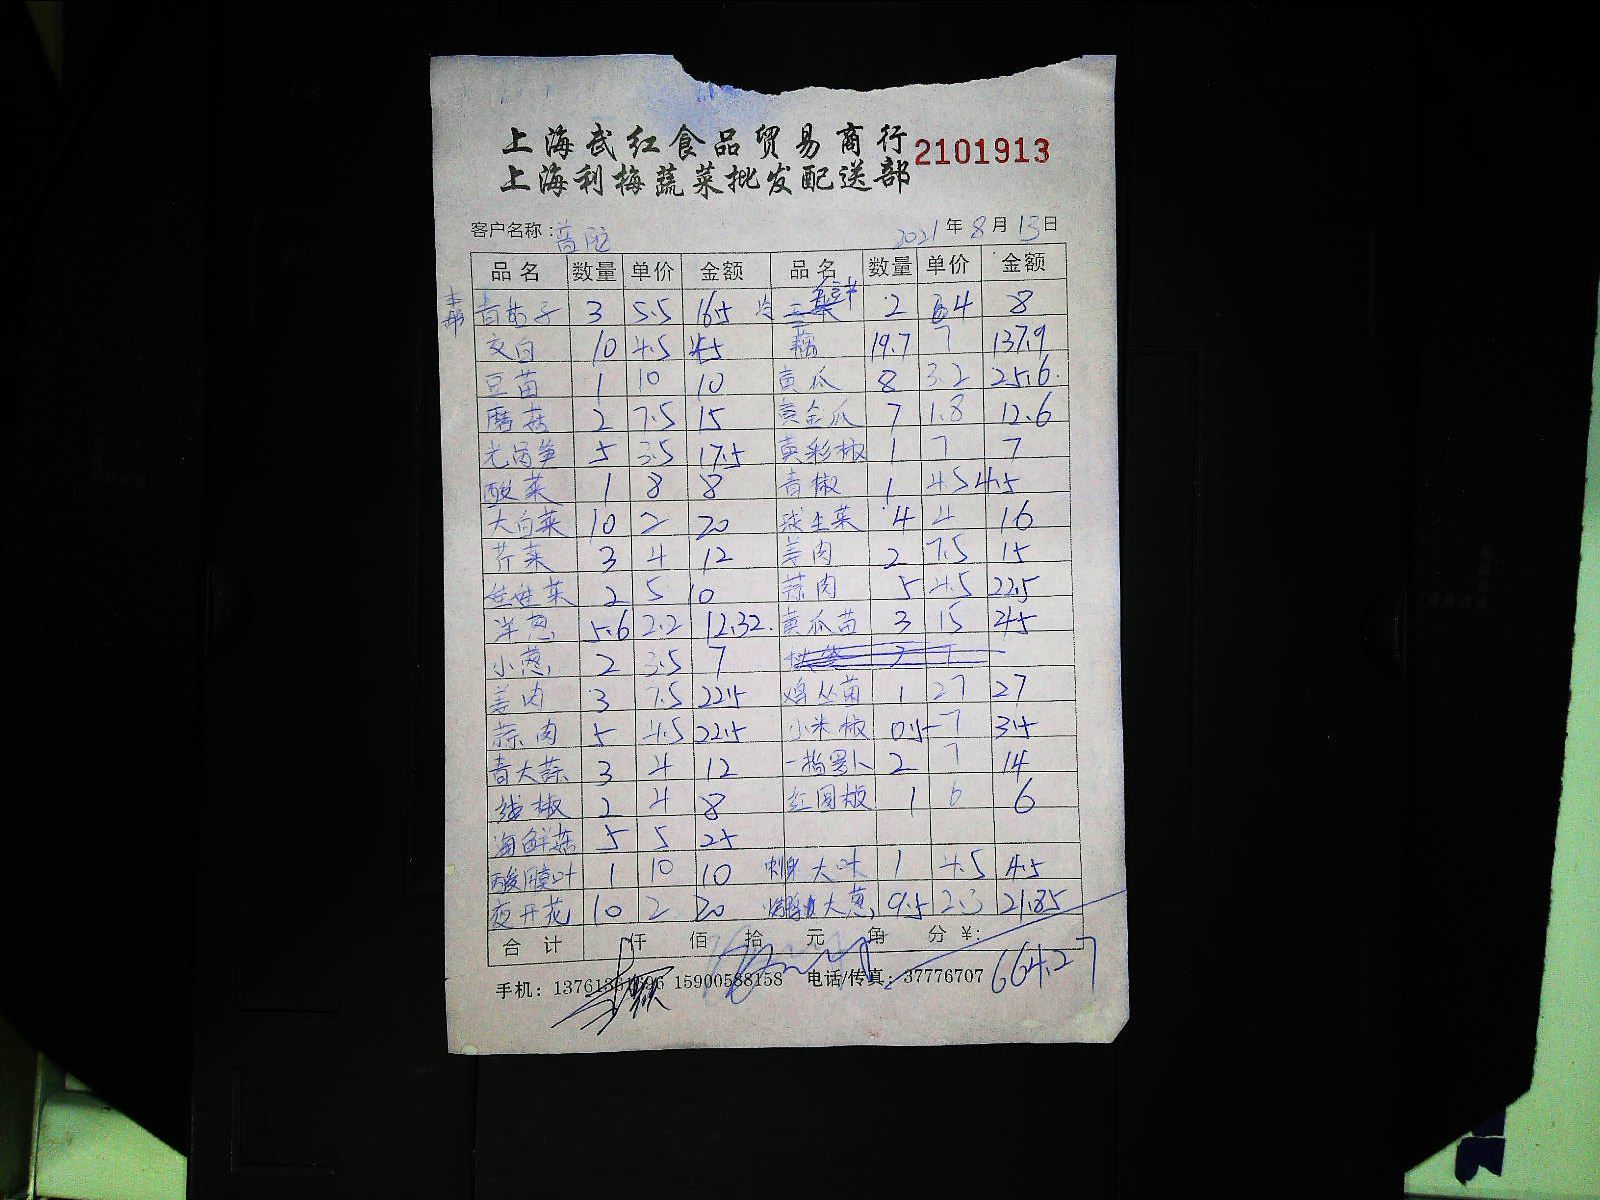 上海武红食品贸易商行 2101913
上海利梅蔬菜批发配送部
客户名称: 2021年8月13日
品名 数量 单价 金额 品名 数量 单价 金额
青茄子 3 5.5 16.5 2 4 8
交白 10 4.5 45 藕 19.7 7 137.9
豆苗 1 10 10 黄瓜 8 3.2 25.6
磨菇 2 7.5 15 黄金瓜 7 1.8 12.6
光莴笋 5 3.5 17.5 黄彩椒 1 7 7
酸菜 1 8 8 青椒 1 4.5 4.5
大白菜 10 2 20 球生菜 4 4 16
芹菜 3 4 12 姜肉 2 7.5 15
娃娃菜 2 5 10 蒜肉 5 4.5 22.5
洋葱 5.6 2.2 12.32 黄瓜苗 3 15 45
小葱 2 3.5 7
姜肉 3 7.5 22.5 鸡丛菌 1 27 27
蒜肉 5 4.5 22.5 小米椒 0.5 7 3.5
青大蒜 3 4 12 一指罗卜 2 7 14
线椒 2 4 8 红圆椒 1 6 6
海鲜菇 5 5 25
1 10 10 刺身大叶 1 4.5 4.5
夜开花 10 2 20 大葱 9.5 2.3 21.85
合计 仟 佰 拾 元 角 分 ¥: 664.27
手机: 15900588158 电话/传真: 37776707